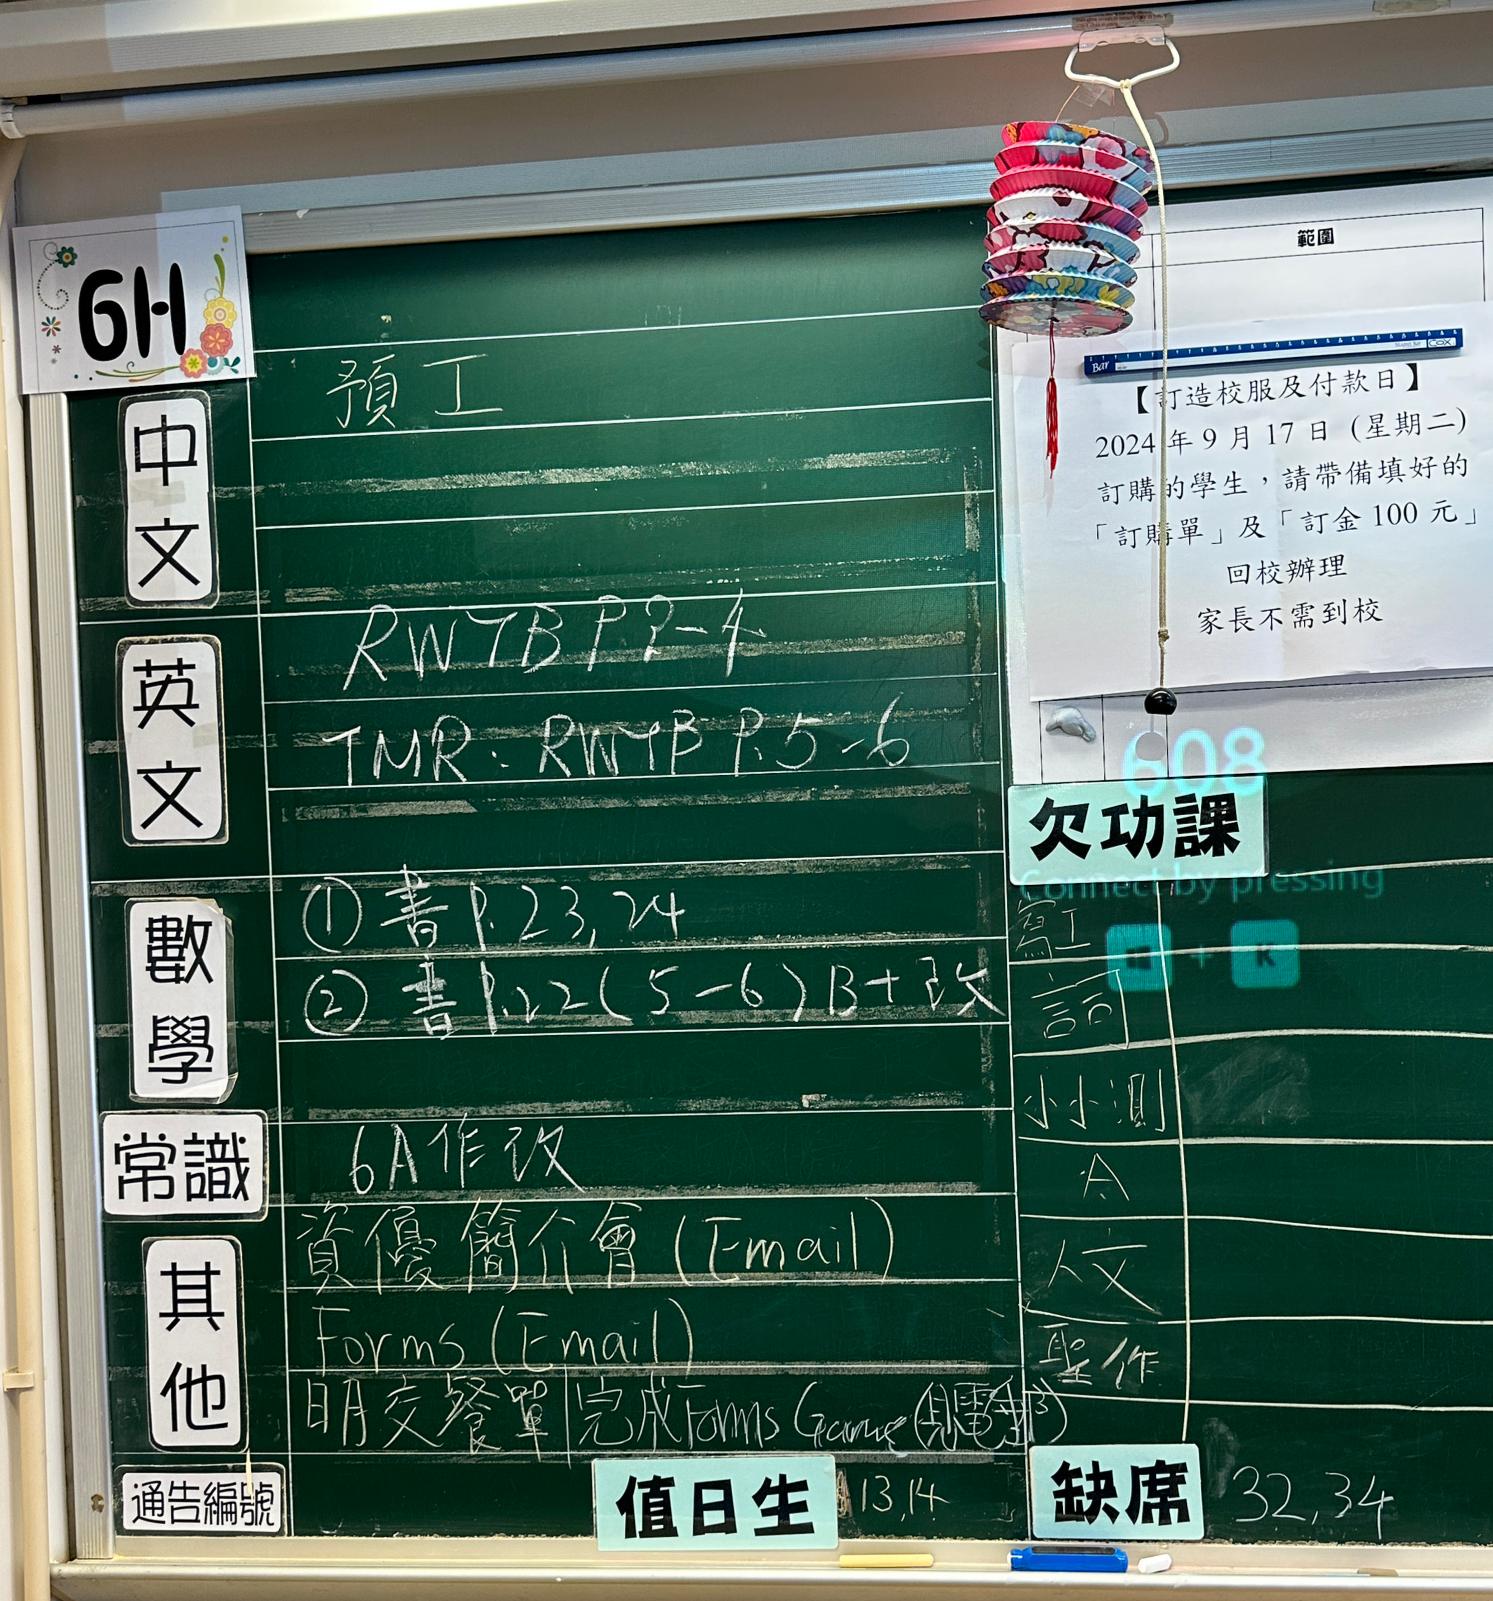 6H
中文
預工
英文
RWTB P.2-4
TMR: RWTB P.5-6
數學
① 書 P.23,24
② 書 P.22(5-6)B+改
常識
6A作改
其他
資優簡介會(Email)
Forms (Email)
明交餐單|完成Forms Game
通告編號
值日生
13,14
範圍
Bar
Cox
【訂造校服及付款日】
2024年9月17日 (星期二)
訂購的學生,請帶備填好的
「訂購單」及「訂金100元」
回校辦理
家長不需到校
608
欠功課
Connect by pressing
+ K
寫工
詞
小小測
A
人文
聖作
缺席
32,34